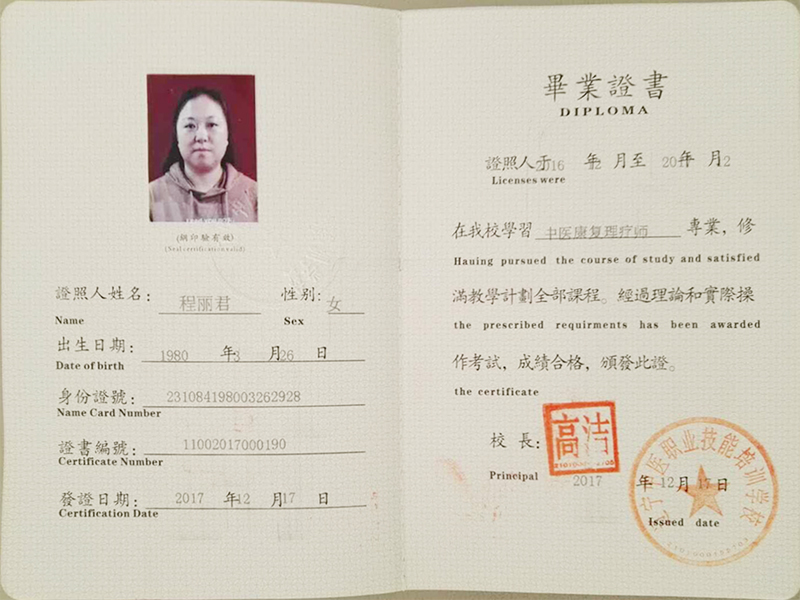 (鋼印驗有效)
(Seal certification valid)
證照人姓名: 程丽君 性别: 女
Name Sex
出生日期: 1980 年3 月26 日
Date of birth
身份證號: 231084198003262928
Name Card Number
證書編號: 11002017000190
Certificate Number
發證日期: 2017 年12 月17 日
Certification Date
畢業證書
DIPLOMA
證照人于2016 年2 月至 201 年 月2
Licenses were
在我校學習 中医康复理疗师 專業，修
Hauing pursued the course of study and satisfied
滿教學計劃全部課程。經過理論和實際操
the prescribed requirments has been awarded
作考試，成績合格，頒發此證。
the certificate
校長: 高洁
Principal 2017 年 12月 17日
Issued date
医职业技能培训学校